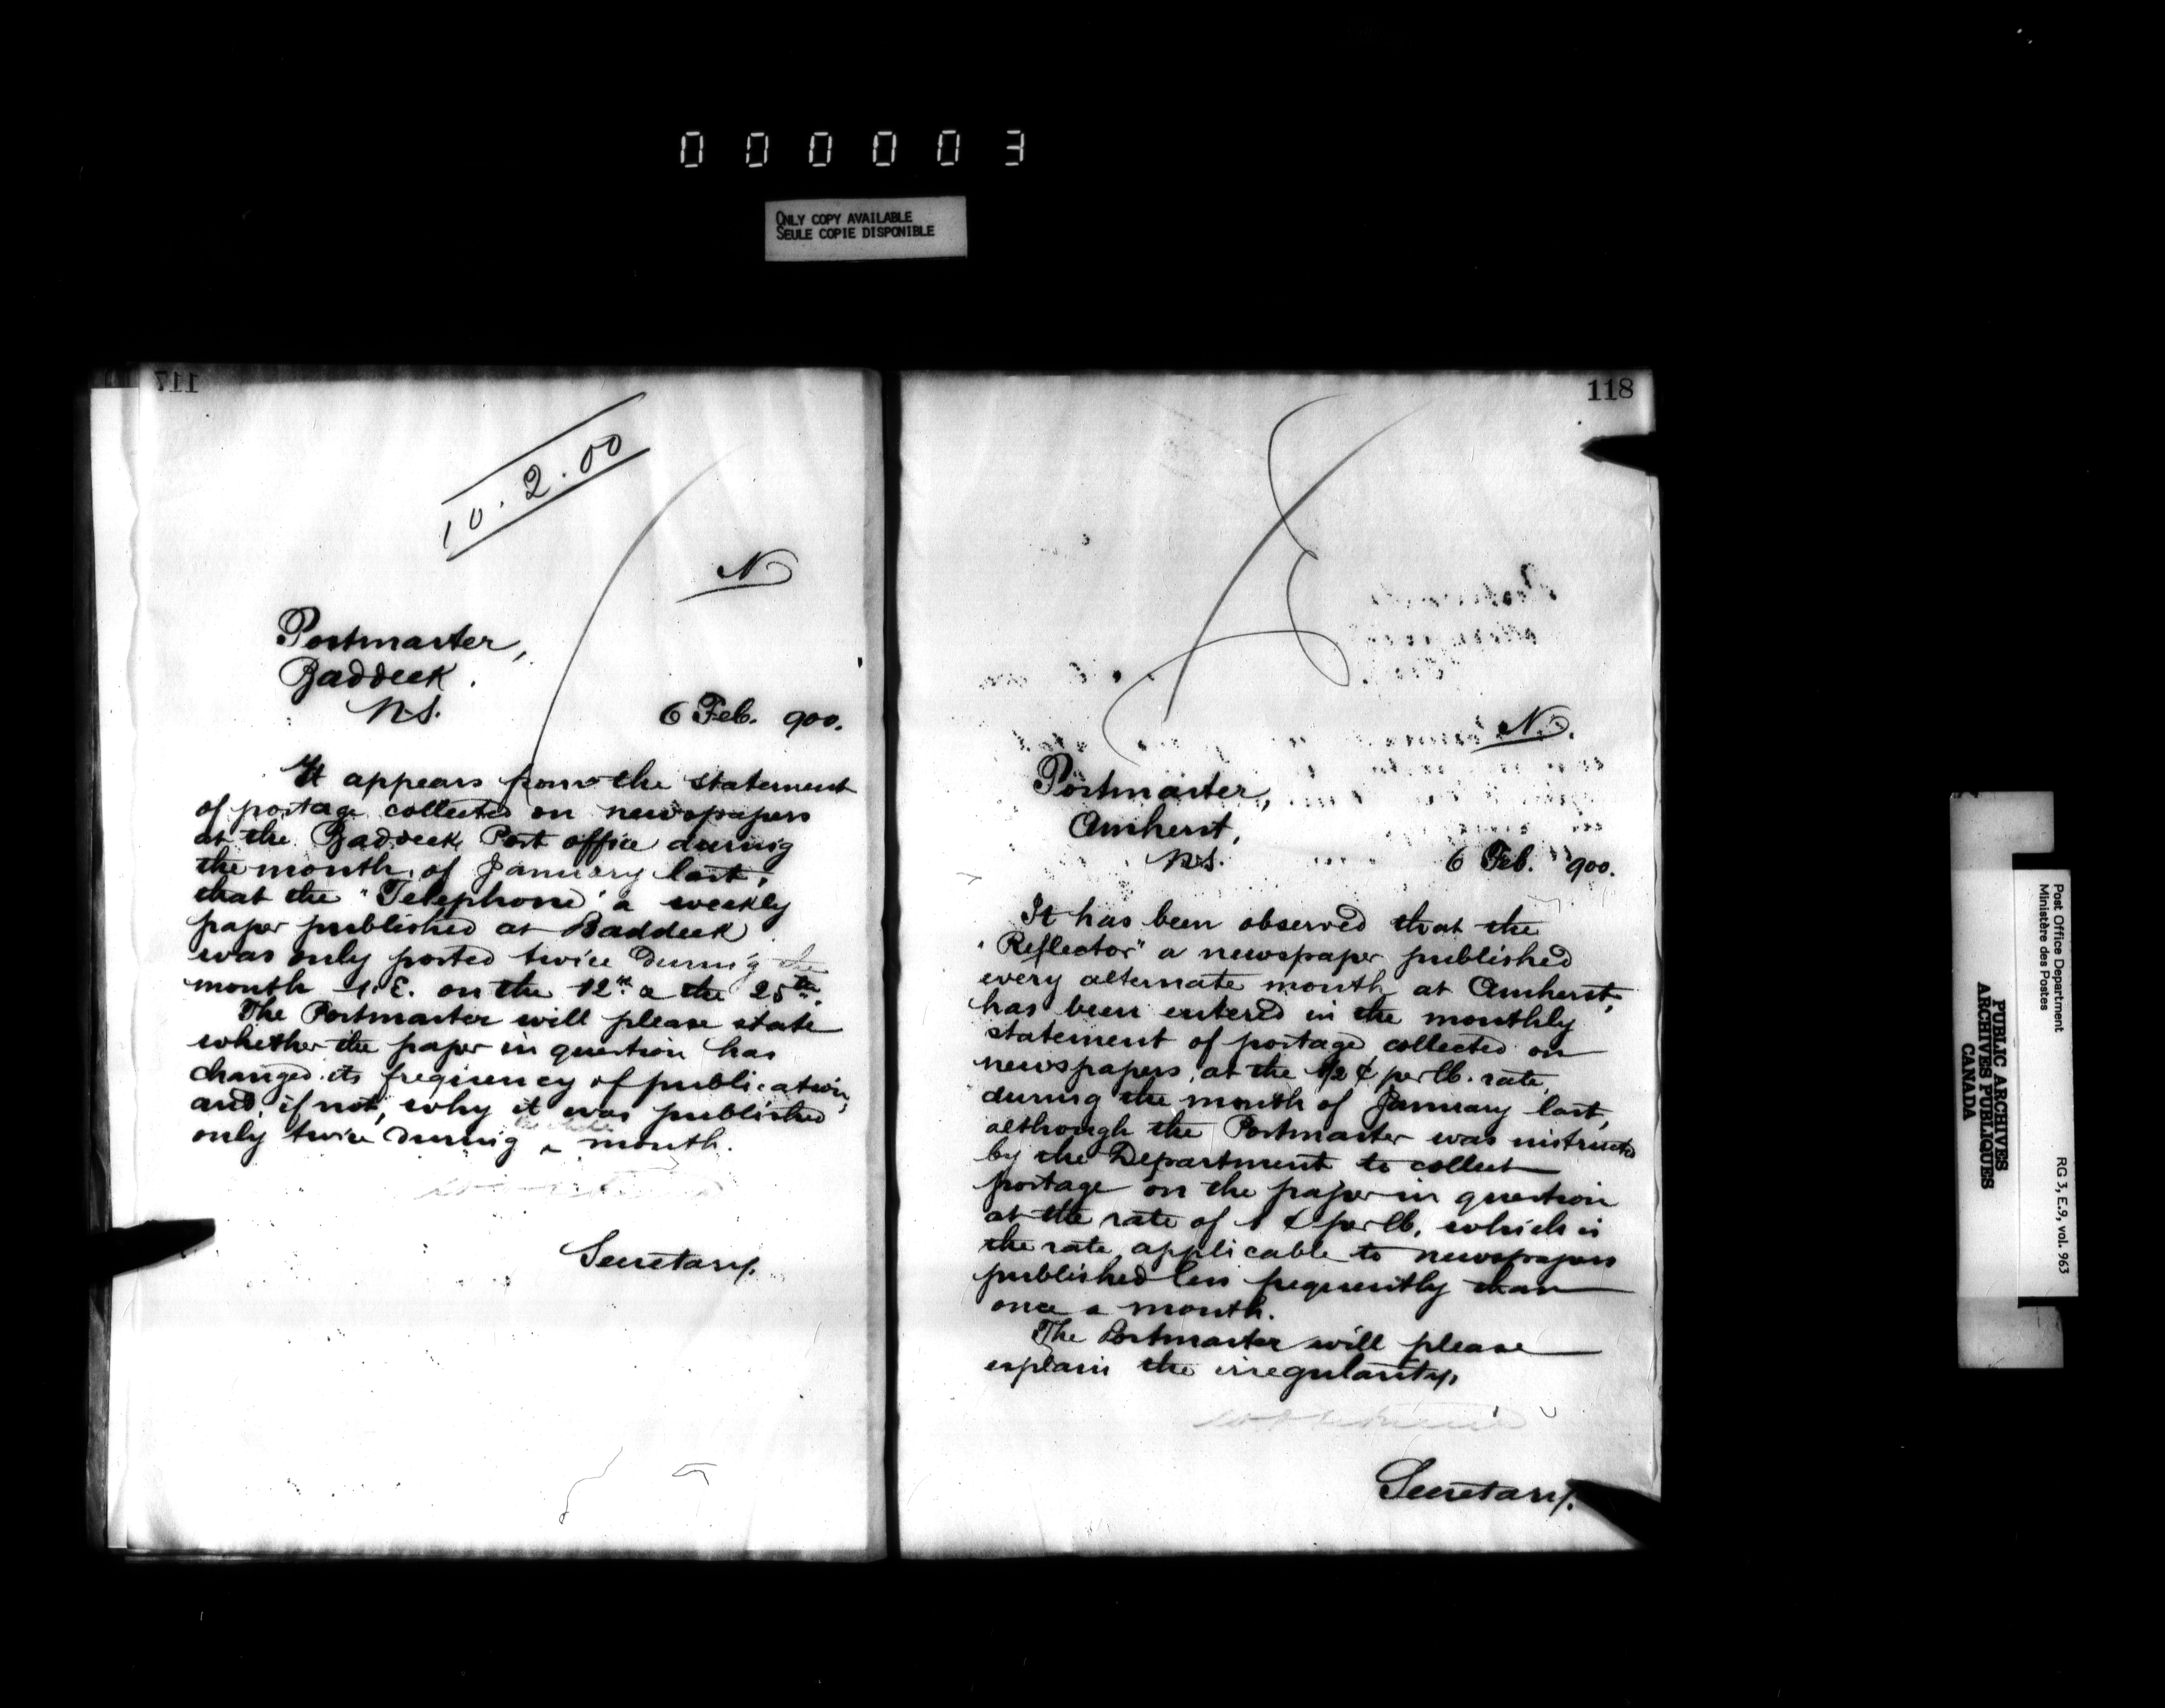 000003
ONLY COPY AVAILABLE
SEULE COPIE DISPONIBLE
117
10.2.00
N
Postmaster,
Baddeck.
N.S.
6 Feb. 900.
It appears from the statement
of postage collected on newspapers
at the Baddeck Post office during
the month of January last,
that the "Telephone" a weekly
paper published at Baddeck
was only posted twice during the
month I.E. on the 12th & the 25th.
The Postmaster will please state
whether the paper in question has
changed its frequency of publication,
and, if not, why it was published
only twice during month.
Secretary.
118
N.
Postmaster,
Amherst,
N.S.
6 Feb. 900.
It has been observed that the
"Reflector" a newspaper published
every alternate month at Amherst,
has been entered in the monthly
statement of postage collected on
newspapers, at the 1/2 ¢ per lb. rate,
during the month of January last,
although the Postmaster was instructed
by the Department to collect
postage on the paper in question
at the rate of 1 ¢ per lb, which is
the rate applicable to newspapers
published less frequently than
once a month.
The Postmaster will please
explain the irregularity.
Secretary.
Post Office Department
Ministère des Postes
RG 3, E.9, vol. 963
PUBLIC ARCHIVES
ARCHIVES PUBLIQUES
CANADA